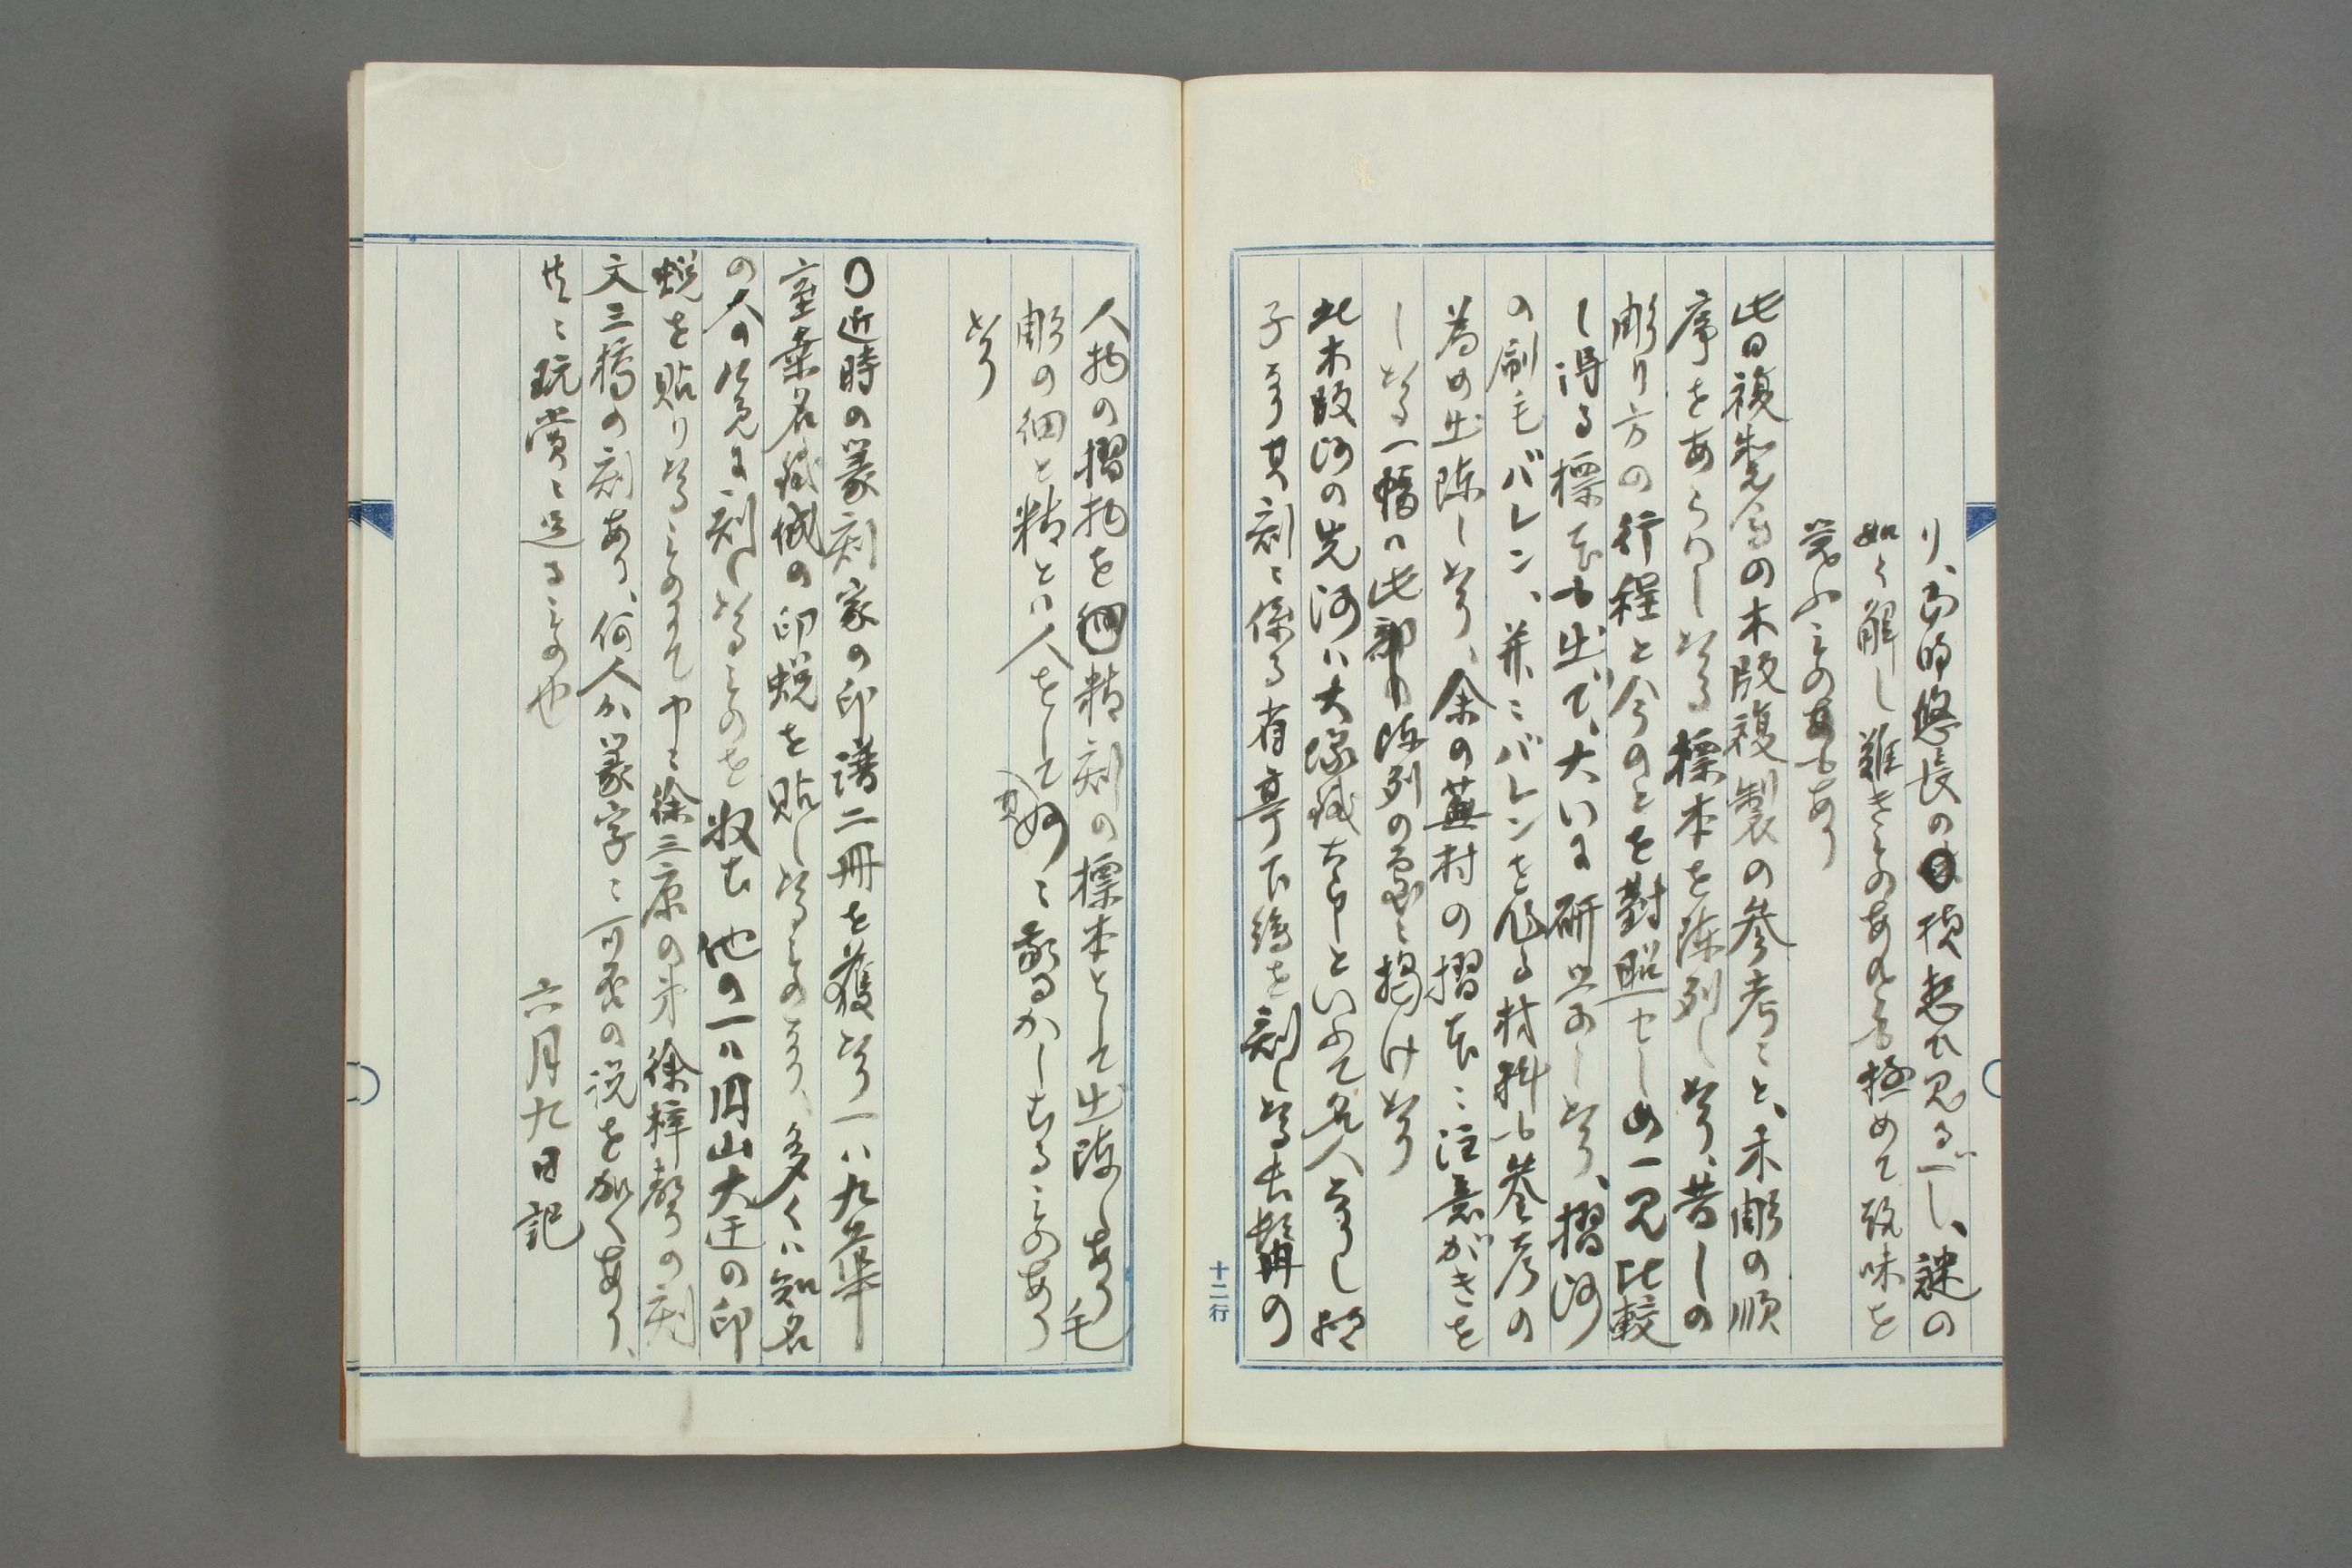 り、当時悠長の模想ひ見るべし、謎の
如く解し難きものあれバ極めて趣味を
覚ふものもあり
此日複製会の木版複製の参考にと、木彫の順
序をあらハしたる標本を陳列したり、昔しの
彫り方の行程と今のとを対照せしめ一見比較
し得る標本も出で、大いに研学したり、摺河
の刷毛バレン、并ニバレンを作る材料も参考の
為め出陳したり、余の蕪村の摺本ニ注意がきを
したる一幅ハ此部の陳列の handle ニ掲けたり
此木版河の先河ハ大塚鉄太郎といふて名人なりし
子なり其刻ニ係る有喜下絵を刻したる長髯の
十二行
人物の摺物を精刻の標本として出陳しあり毛
彫の細と精とハ人をして其妙ニ驚かしむるものあり
たり
〇近時の篆刻家の印譜二冊を獲たり一ハ九華
室桑名鉄城の印蛻を貼したるものなり、多くハ知名
の人の嘱に刻したるものを収む他の一ハ円山大迂の印
蛻を貼りたるものにて中ニ徐三庚の弟徐梓声の刻
文三橋の刻あり、何人か篆字ニ可否の説を加へあり、
共ニ玩賞ニ足るもの也
六月九日記